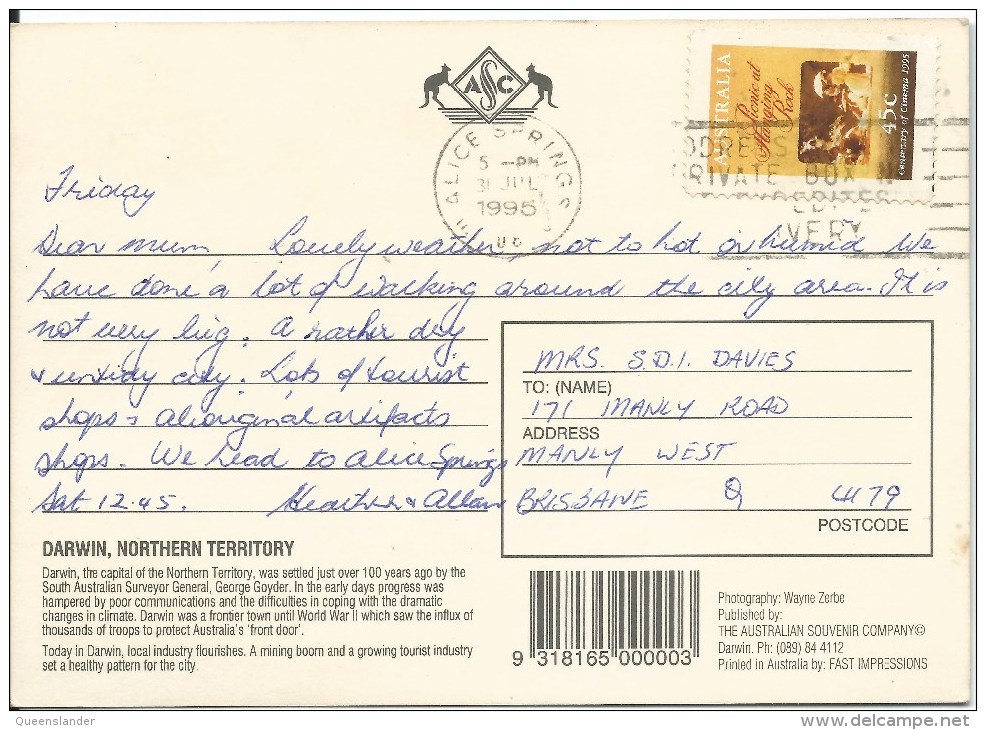 ASC
AUSTRALIA
Picnic at
Hanging
Rock
45c
Centenary of Cinema 1995
ALICE SPRINGS
5 -PM
31 JUL
1995
PRIVATE BOX
Friday
Dear mum, Lovely weather, not to hot or humid We
have done a lot of walking around the city area. It is
not very big. A rather dry
& untidy city. Lots of tourist
shops & aboriginal artifacts
shops. We head to Alice Springs
Sat 12.45. Heather & Allan
MRS. S.D.I. DAVIES
TO: (NAME)
171 MANLY ROAD
ADDRESS
MANLY WEST
BRISBANE Q 4179
POSTCODE
DARWIN, NORTHERN TERRITORY
Darwin, the capital of the Northern Territory, was settled just over 100 years ago by the
South Australian Surveyor General, George Goyder. In the early days progress was
hampered by poor communications and the difficulties in coping with the dramatic
changes in climate. Darwin was a frontier town until World War II which saw the influx of
thousands of troops to protect Australia's 'front door'.
Today in Darwin, local industry flourishes. A mining boom and a growing tourist industry
set a healthy pattern for the city.
9 318165 000003
Photography: Wayne Zerbe
Published by:
THE AUSTRALIAN SOUVENIR COMPANY©
Darwin. Ph: (089) 84 4112
Printed in Australia by: FAST IMPRESSIONS
Queenslander
www.delcampe.net